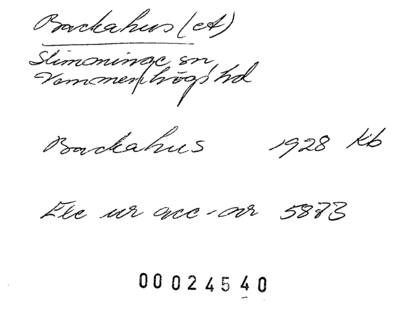 Backahus (cA)
Slimminge sn
Vemmenhögs hd
Backahus 1928 Kb
Exc ur acc-or 5873
00024540